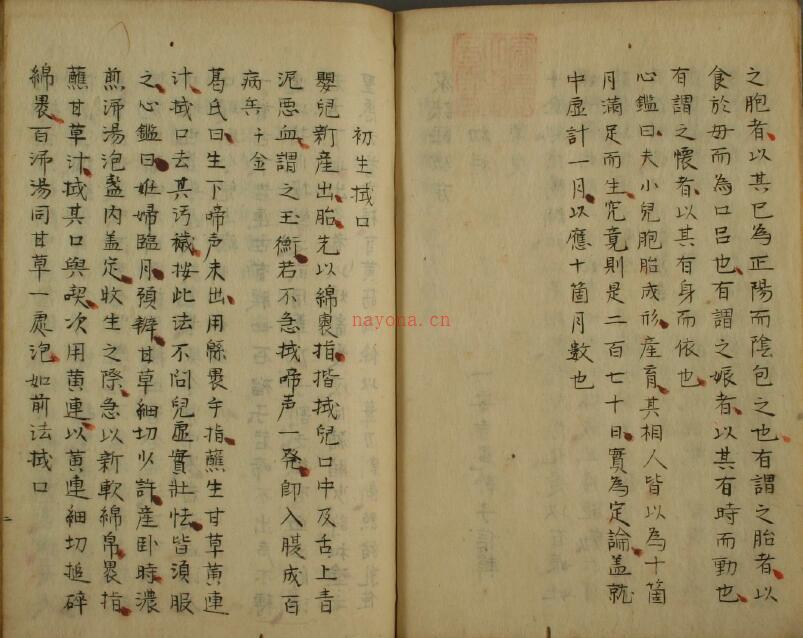 之胞者以其已為正陽而陰包之也有謂之胎者以
食於母而為口呂也有謂之娠者以其有時而動也
有謂之懐者以其有身而依也
心鑑曰夫小兒胞胎成形產育其相人皆以為十箇
月滿足而生究竟則是二百七十日實為定論盖就
中虛計一月以應十箇月數也
初生拭口
嬰兒新產出胎先以綿裹指揩拭兒口中及舌上青
泥悪血謂之玉衡若不急拭啼声一発即入腹成百
病矣千金
葛氏曰生下啼声未出用綿裹手指蘸生甘草黄連
汁拭口去其污穢按此法不問兒虛實壯怯皆須服
之心鑑曰姙婦臨月預辨甘草細切少許產卧時濃
煎沸湯泡盞内盖定收生之際急以新軟綿帛裹指
蘸甘草汁拭其口與喫次用黄連以黄連細切搥碎
綿裹百沸湯同甘草一處泡如前法拭口
nayona.cn